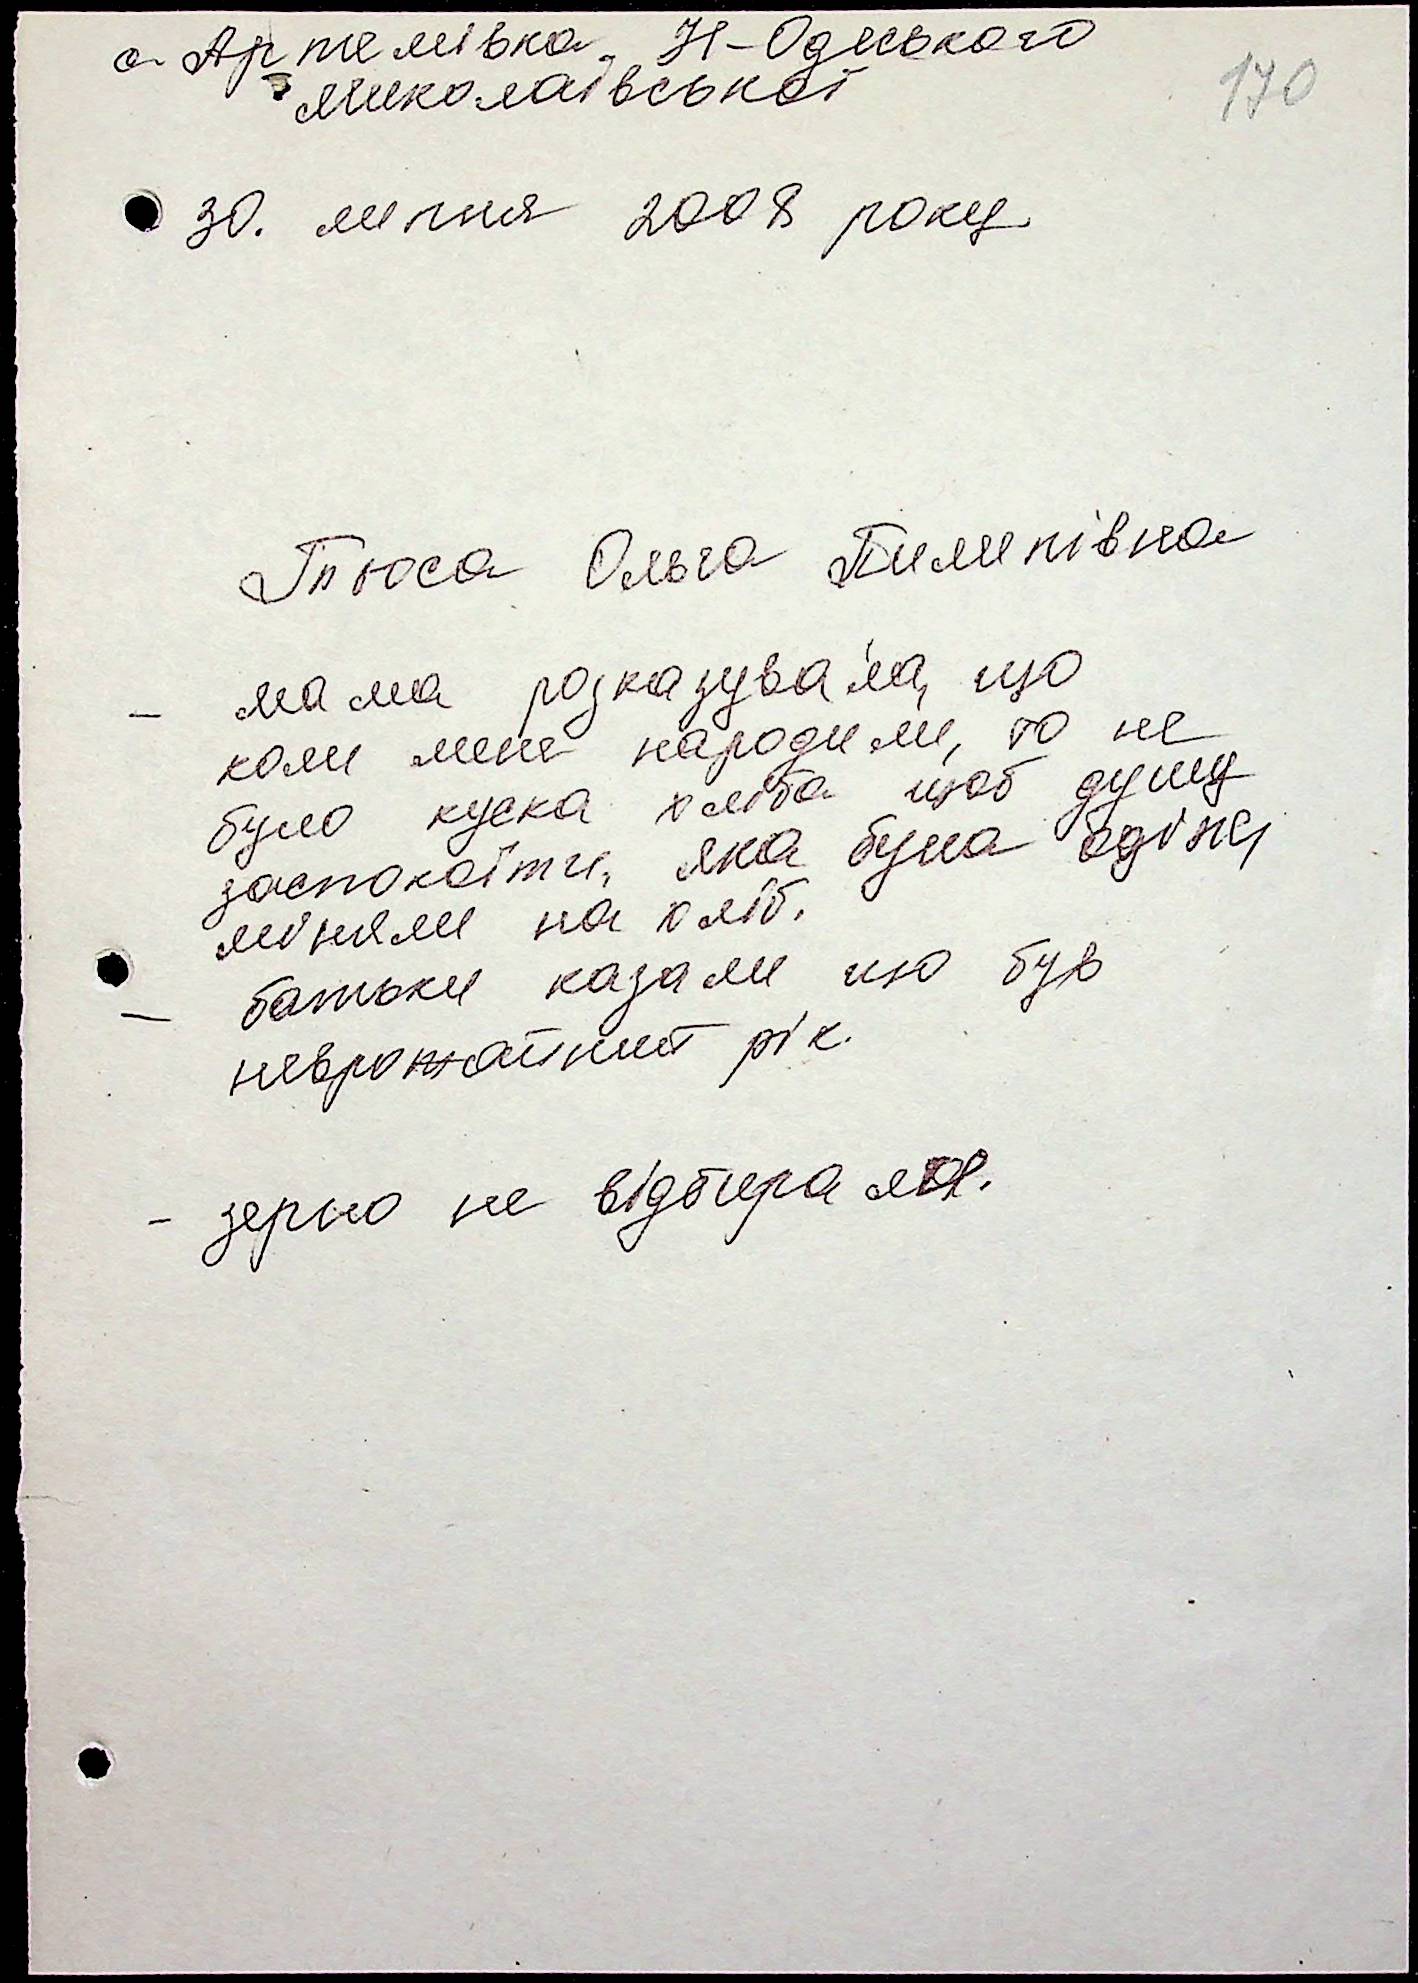 с. Артемівка Н-Одеського
Миколаївської
170
30. липня 2008 року
Тюса Ольга Пилипівна
- мама розказувала, що
коли мене народили, то не
було куска хліба щоб душу
заспокоїти, яка була одіж,
міняли на хліб.
- батьки казали що був
неврожайний рік.
- зерно не відбирали.